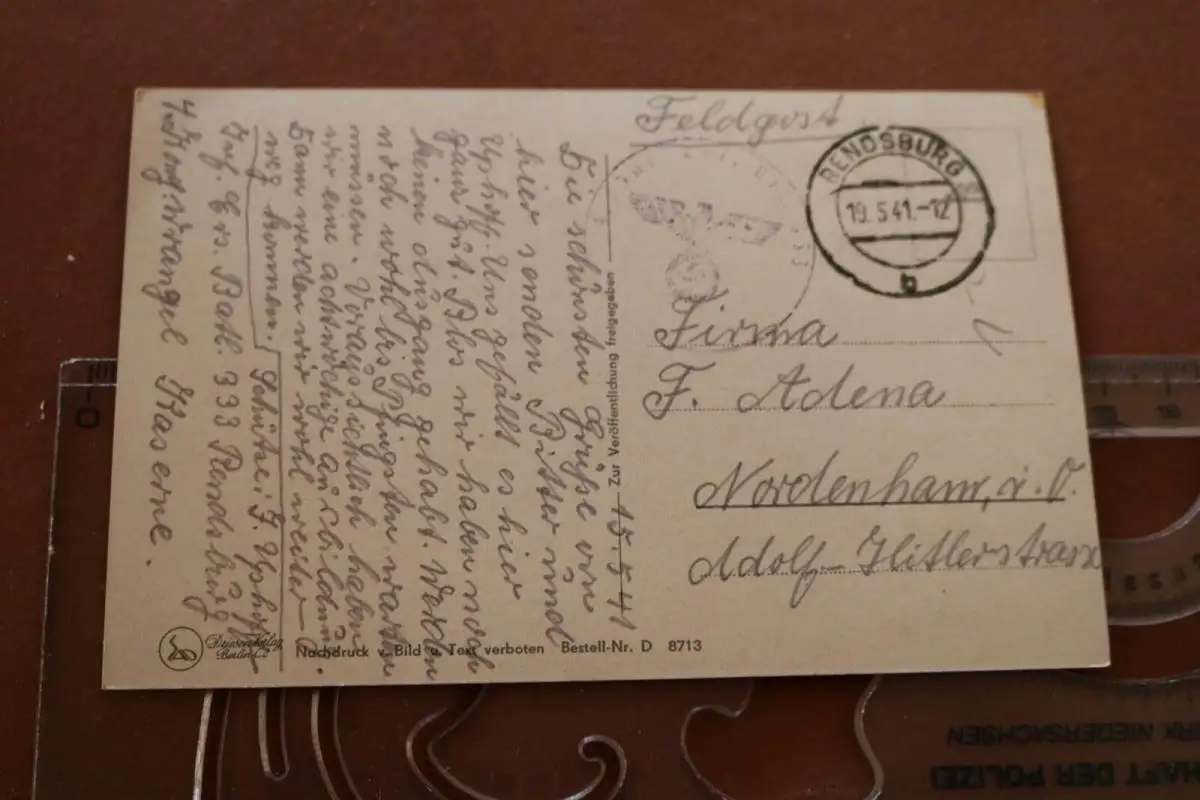 Feldpost
RENDSBURG
19.5.41.-12
b
Firma
F. Adena
Nordenham, i. O.
Adolf-Hitlerstrasse
Zur Veröffentlichung freigegeben
15.5.41
Die schönsten Grüße von
hier senden Bitter und
Uphoff. Uns gefällt es hier
ganz gut. Blos wir haben noch
keinen Ausgang gehabt. Werden
noch wohl bis Pfingsten warten
müssen. Voraussichtlich haben
wir eine achtwöchige Ausbildung.
Dann werden wir wohl weiter
weg kommen.
Schütze: F. Uphoff
Inf. Ers. Batl. 333 Rendsburg
4. Komp. Wrangel Kaserne.
Driesen Verlag
Berlin
Nachdruck v. Bild u. Text verboten Bestell-Nr. D 8713
RK NIEDERSACHSEN
HAFT DER POLIZEI
0